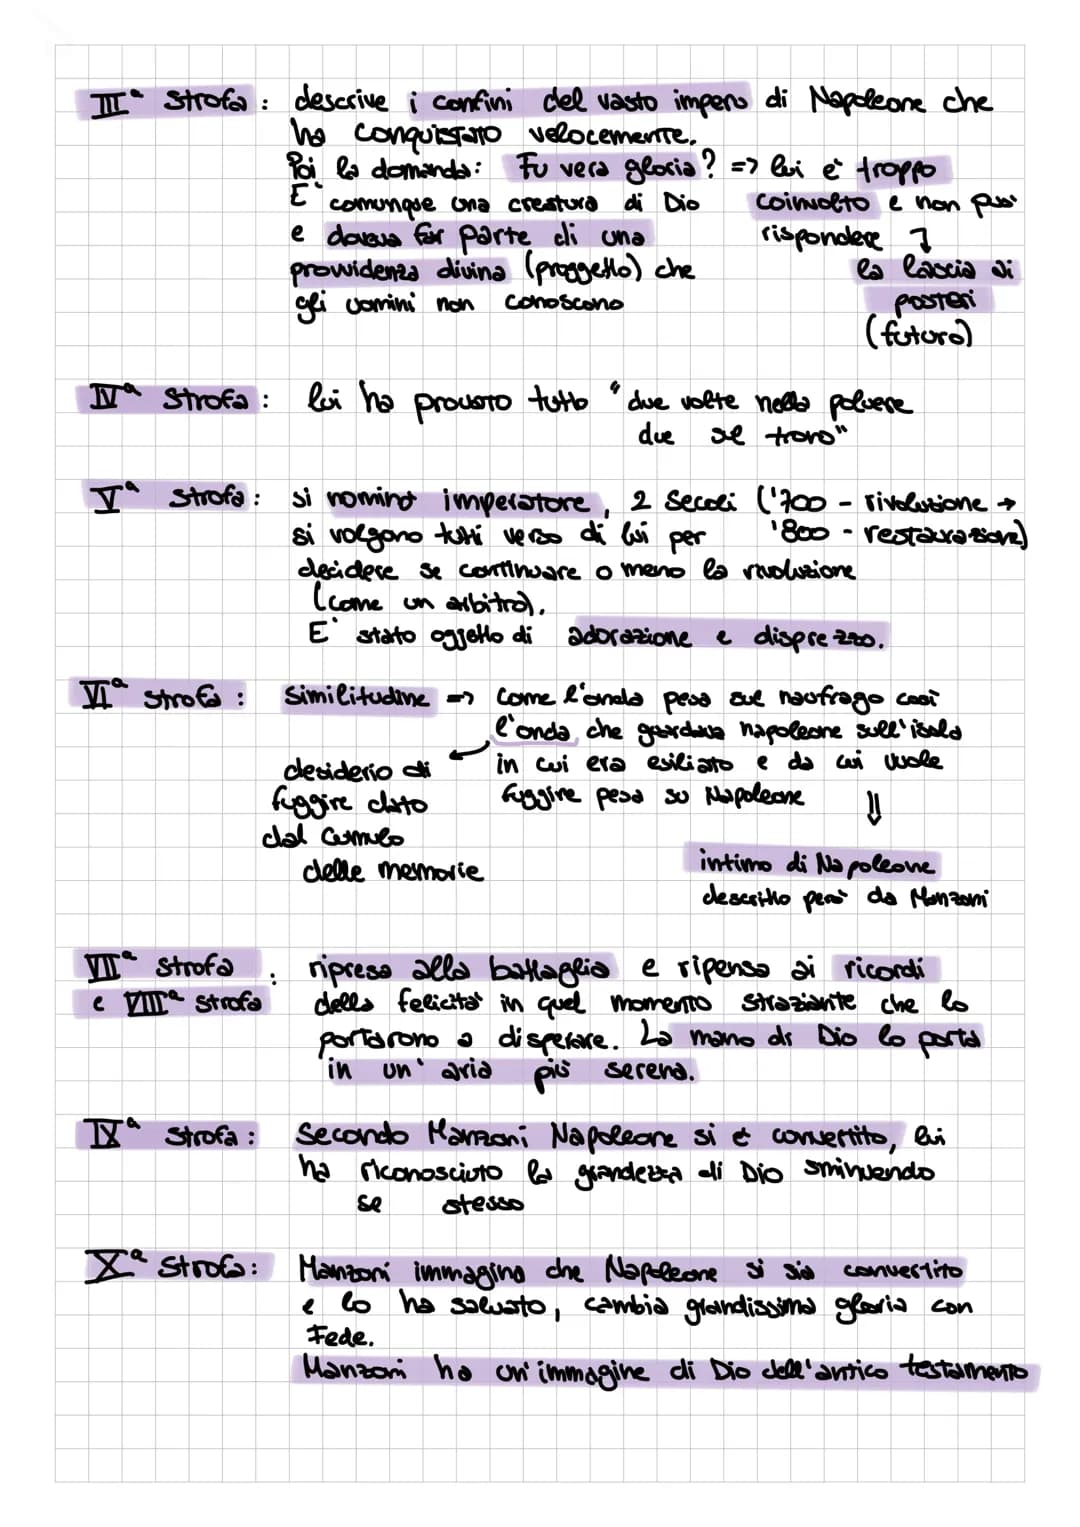 IIIª Strofa: descrive i confini del vasto impero di Napoleone che
ha conquistato velocemente.
Poi la domanda: Fu vera gloria? => lui è troppo
coinvolto e non può
rispondere
la lascia ai
posteri
(futuro)
E' comunque una creatura di Dio
e doveva far parte di una
provvidenza divina (proggetto) che
gli uomini non conoscono
IVª Strofa: lui ha provato tutto "due volte nella polvere
due sul trono"
Vª Strofa: si nominò imperatore, 2 secoli ('700 - rivoluzione →
'800 - restaurazione)
si volgono tutti verso di lui per
decidere se continuare o meno la rivoluzione
(come un arbitro).
E' stato oggetto di adorazione e disprezzo.
VIª Strofa: Similitudine => come l'onda pesa sul naufrago così
l'onda che guardava napoleone sull'isola
in cui era esiliato e da cui vuole
fuggire pesa su Napoleone
desiderio di
fuggire dato
dal cumulo
delle memorie
intimo di Napoleone
descritto però da Manzoni
VIIª strofa
e VIIIª strofa : ripresa alla battaglia e ripensa ai ricordi
della felicità in quel momento straziante che lo
portarono a disperare. La mano di Dio lo porta
in un'aria più serena.
IXª Strofa: Secondo Manzoni Napoleone si è convertito, lui
ha riconosciuto la grandezza di Dio sminuendo
se stesso
Xª Strofa: Manzoni immagina che Napoleone si sia convertito
e lo ha salvato, cambia grandissima gloria con
Fede.
Manzoni ha un'immagine di Dio dell'antico testamento